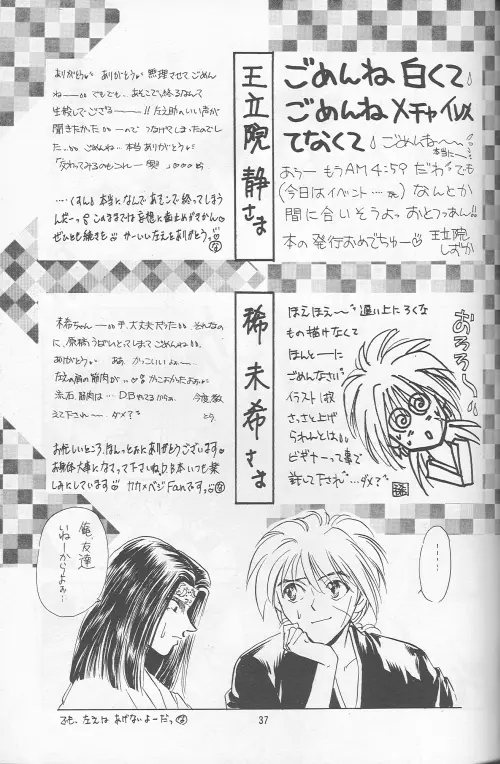 王立院 静さま
ごめんね 白くて
ごめんね メチャイメ
てなくて
ごめんね〜
本当に〜
あうー もうAM4:59 だわ でも
(今日はイベント…) なんとか
間に合いそうよっ おとっつぁん!!
本の発行おめでちゅー♡ 王立院
しずか
ありがとう ありがとう 無理させて ごめん
ね
でもでも、あそこで終るなんて
!! 左之助のいい声が
聞きたかった
つなげてしまったのでし
た ごめんね 本当ありがとう
…くすん 本当になんであそこで終ってしまう
んだーっ このままでは妄想に歯止めがきかん
ぜひとも続きを かーいい左えをありがとう
稀 未希さま
ほえほえ〜 遅い上にろくな
もの描けなくて
ほんとーに
ごめんなさい
イラスト1枚
さっさと上げ
られんとは
ビギナーって事で
許して下され…ダメ?
おろろん
未希ちゃん 大丈夫だった それなの
に、原稿うばいとってしまって ごめんねぇ
ありがとう ああ かっこいいよぉ
左えの肩の筋肉が
流石、筋肉は… D.B.やってるからね 今度、教
えて下され ダメ?
お忙しいところ、ほんっとぉにありがとうございます
お身体大事になさって下さいね D.B本いつも楽
しみにしています カカ×ベジFanですっ
…
俺、友達
いねーからよぉ…
でも、左えは あげないよーだっ
37